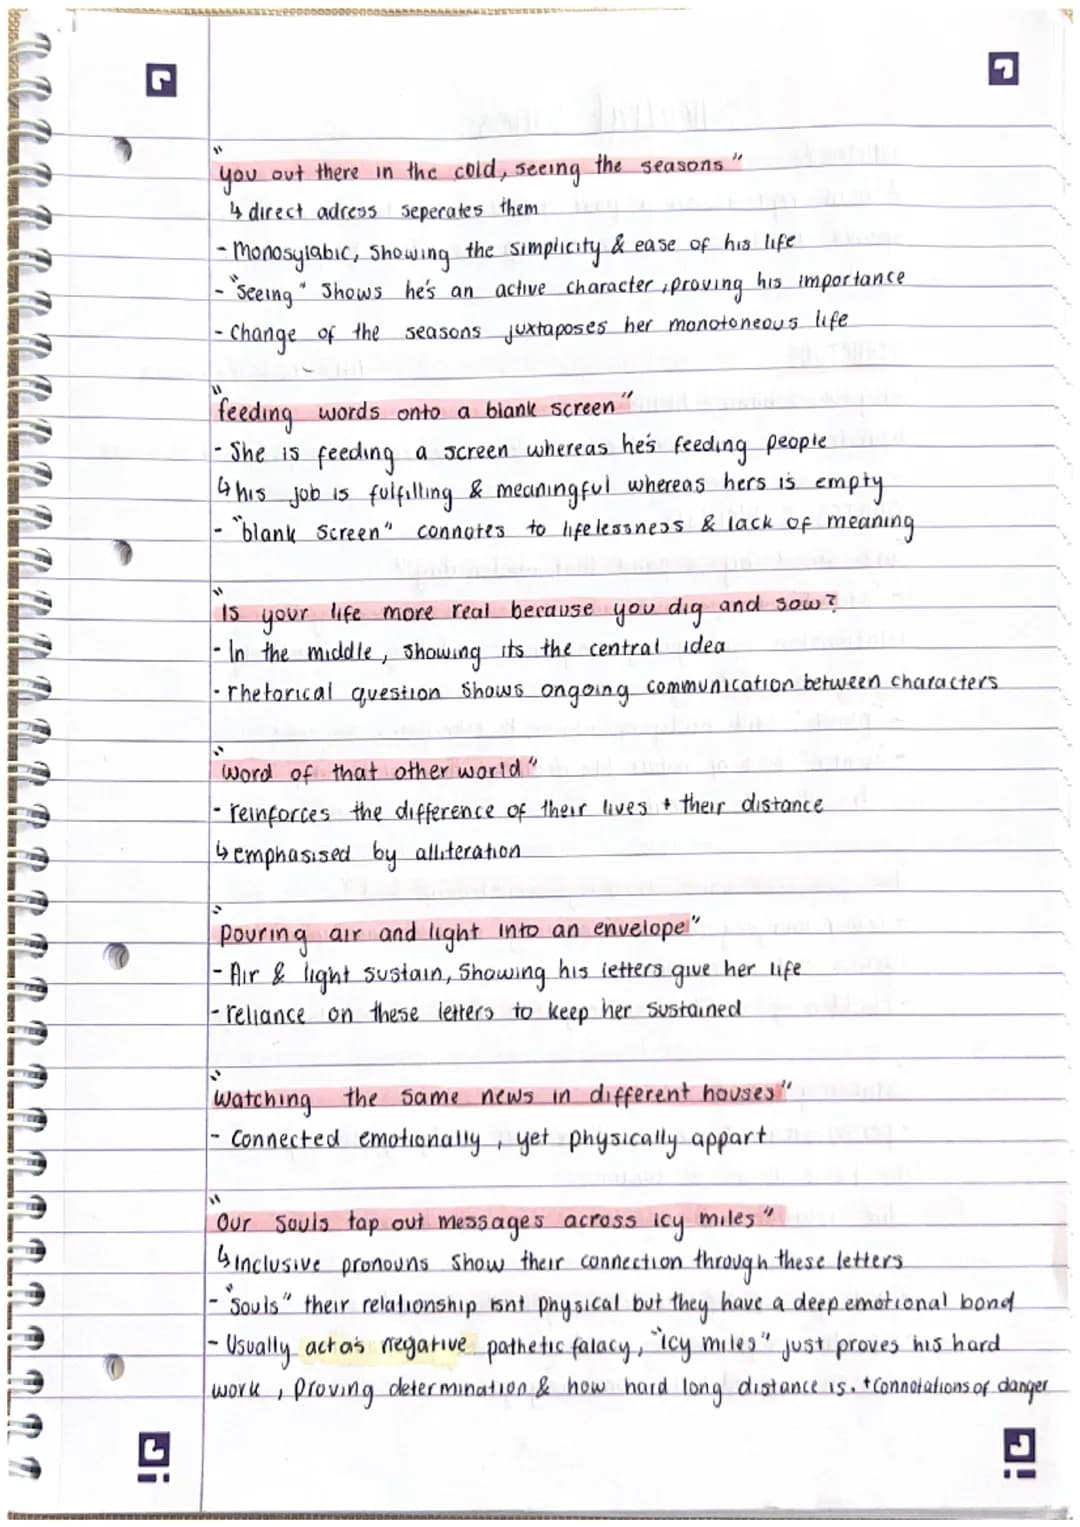 "you out there in the cold, seeing the seasons"
↳ direct adress seperates them
- Monosylabic, Showing the simplicity & ease of his life
- "Seeing" Shows he's an active character, proving his importance
- Change of the seasons juxtaposes her monotoneous life
"feeding words onto a blank screen"
- She is feeding a screen whereas he's feeding people
↳ his job is fulfilling & meaningful whereas hers is empty
- "blank Screen" connotes to lifelessness & lack of meaning
"Is your life more real because you dig and sow?
- In the middle, showing its the central idea
- rhetorical question Shows ongoing communication between characters
"Word of that other world"
- reinforces the difference of their lives + their distance
↳ emphasised by alliteration
"Pouring air and light into an envelope"
- Air & light sustain, Showing his letters give her life
- reliance on these letters to keep her Sustained
"Watching the same news in different houses"
- Connected emotionally, yet physically appart
"Our Souls tap out messages across icy miles"
↳ Inclusive pronouns Show their connection through these letters
- "Souls" their relationship isnt physical but they have a deep emotional bond
- Usually act as negative pathetic falacy, "icy miles" just proves his hard
work, Proving determination & how hard long distance is. + Connotations of danger